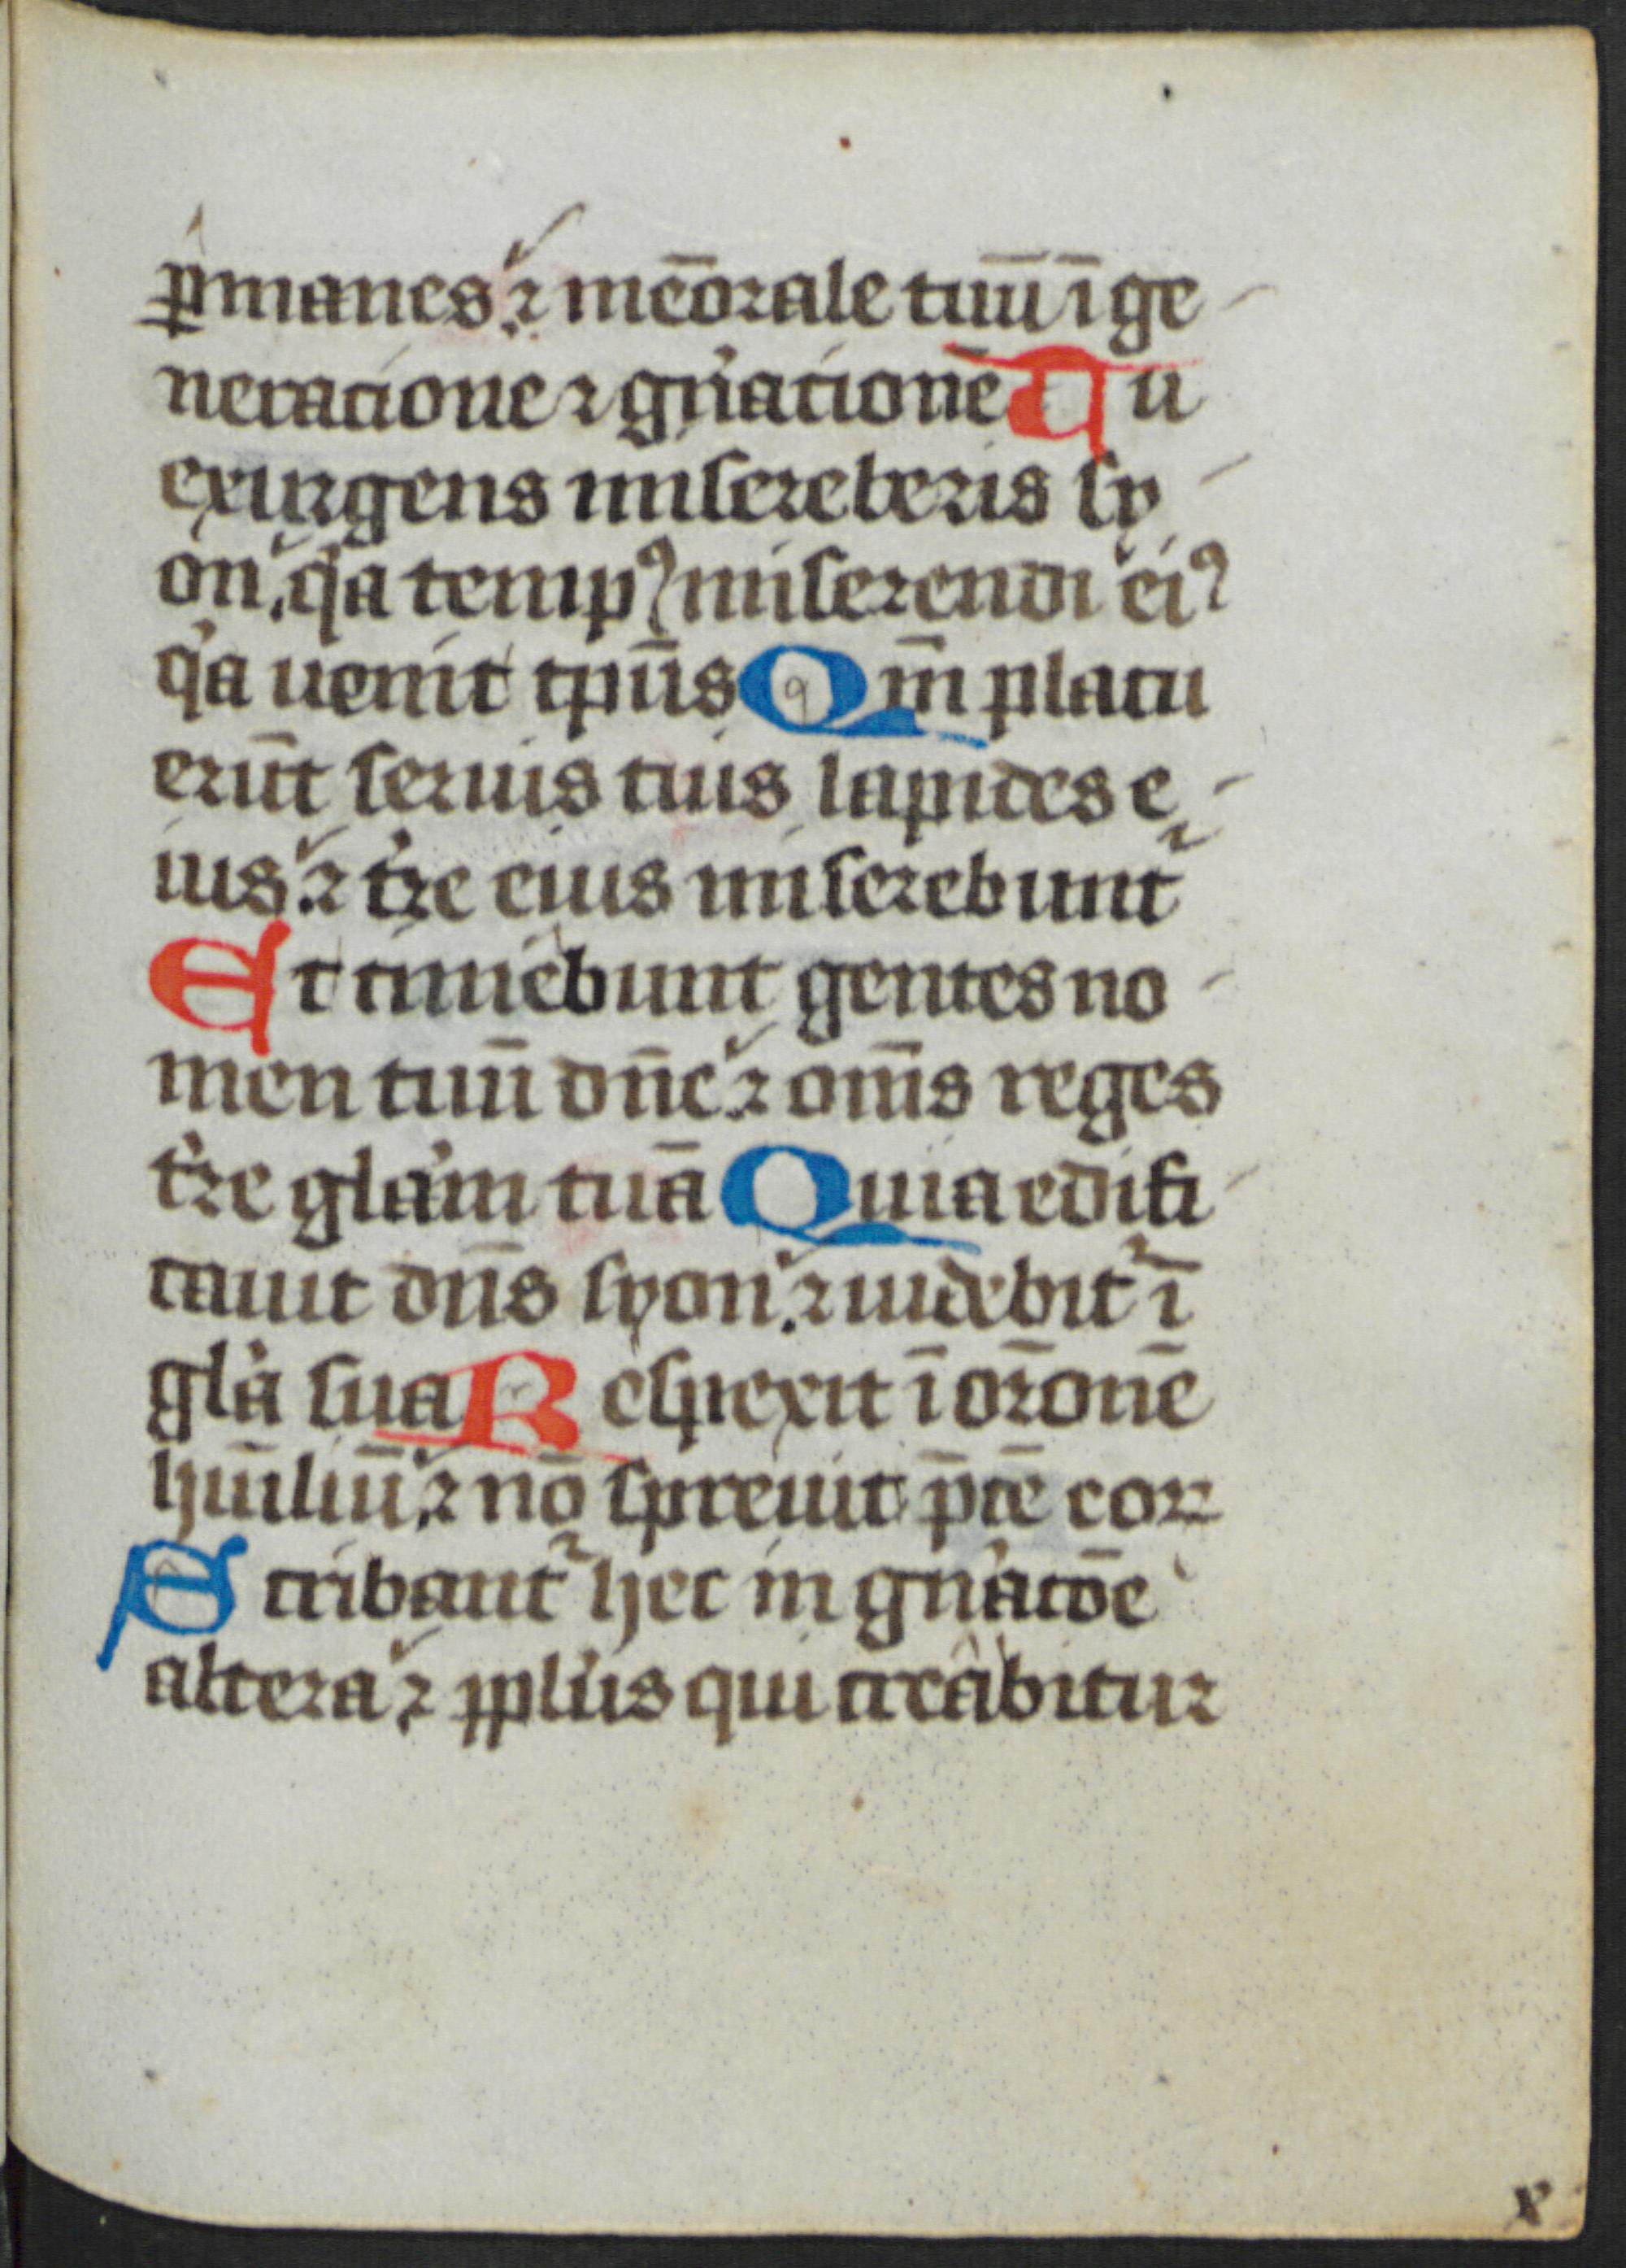 ꝑmanes ⁊ mēorale tuū ī ge-
neracione ⁊ gn̄ationē Tu
exurgens misereberis sy-
on q'a tempꝰ miserendi eiꝰ
q'a uenit tp̄us Qm̄ placu
erūt seruis tuis lapides e-
ius ⁊ tr̄e eius miserebunt᷑
Et timebunt gentes no-
men tuū dn̄e ⁊ om̄s reges
tr̄e gl'am tuā Quia edifi-
cauit dn̄s syon ⁊ uidebit᷑ ī
gl'a sua Respexit ī or̄onē
hūiliū ⁊ nō spreuit p̄cē eoꝝ
Scribant᷑ hec in gn̄atōe
altera ⁊ ppl'us qui creabitur
x